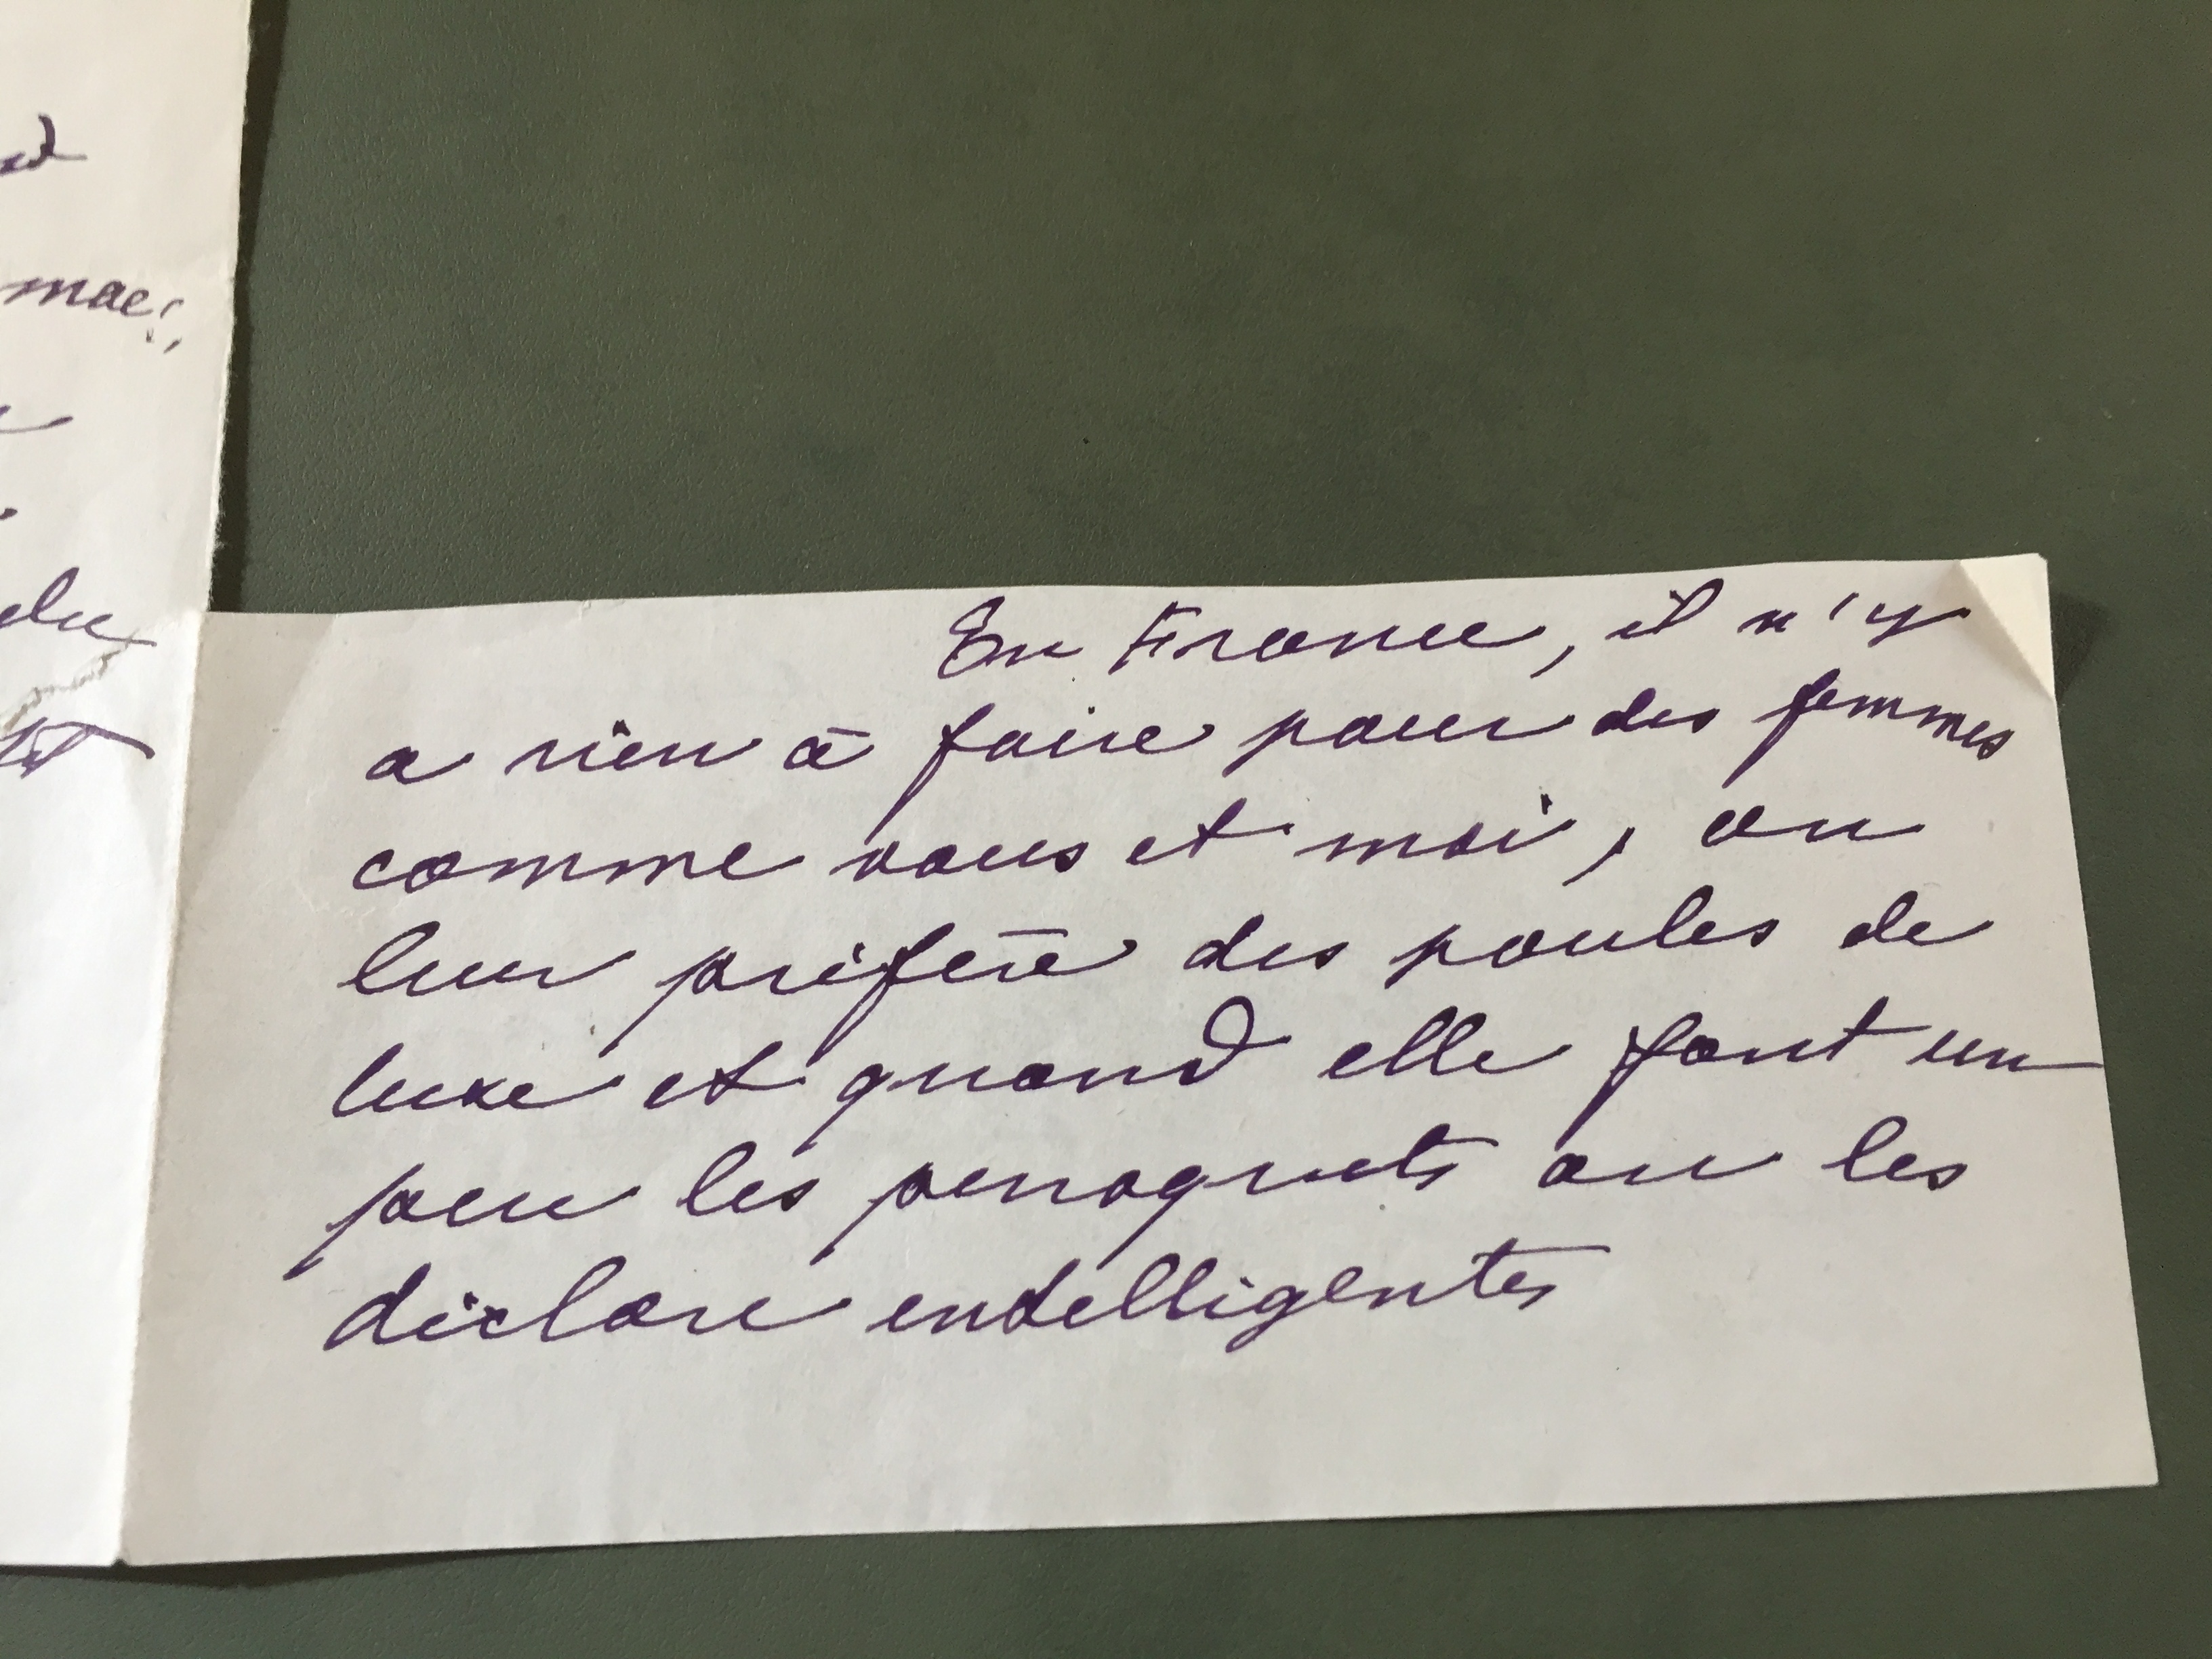 moi,
du
En France, il n'y
a rien à faire pour des femmes
comme vous et moi, on
leur préfère des poules de
luxe et quand elle font un
peu les perroquets on les
déclare entelligentes